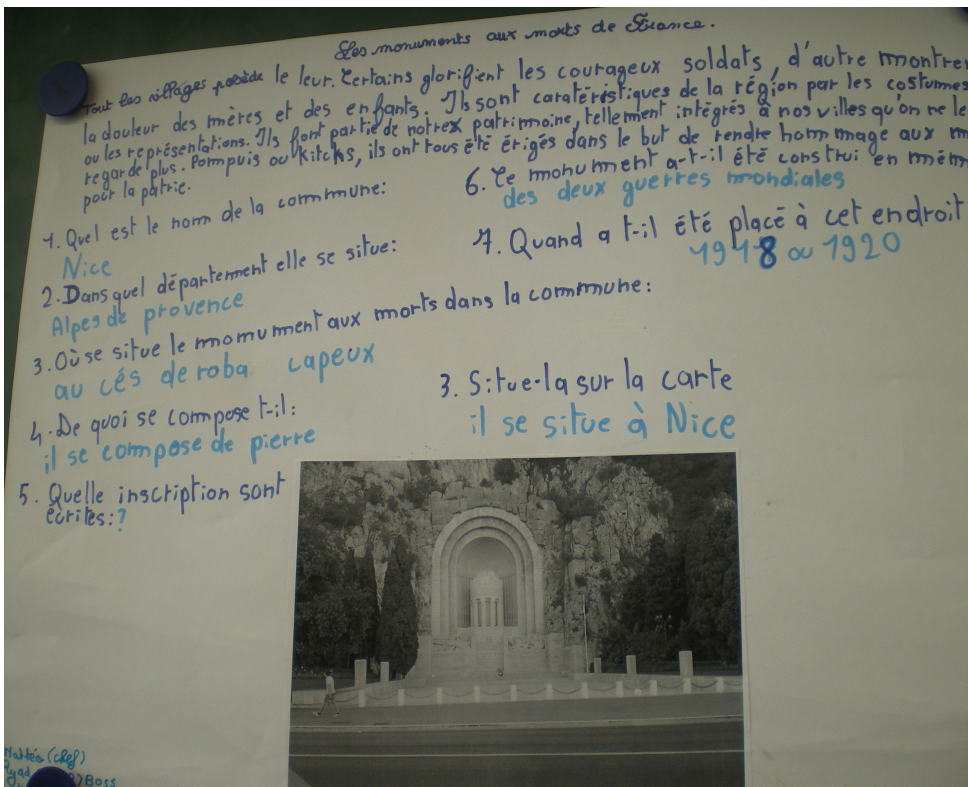 Les monuments aux morts de France.
Tout les villages possède le leur. Certains glorifient les courageux soldats, d'autre montren
la douleur des mères et des enfants. Ils sont caratéristiques de la région par les costumes
ou les représentations. Ils font partie de notrex patrimoine, tellement intégrés à nos villes qu'on ne le
regarde plus. Pompuis ou kitchs, ils ont tous été érigés dans le but de rendre hommage aux m
pour la patrie.
1. Quel est le nom de la commune:
Nice
2. Dans quel département elle se situe:
Alpes de provence
3. Où se situe le momument aux morts dans la commune:
au cés de roba capeux
4. De quoi se compose t-il:
il se compose de pierre
5. Quelle inscription sont
écrites:?
6. Ce monument a-t-il été construi en mém
des deux guerres mondiales
7. Quand a t-il été placé à cet endroit
1918 ou 1920
3. Situe-la sur la carte
il se situe à Nice
Mattéo (chef)
Ryad
Boss